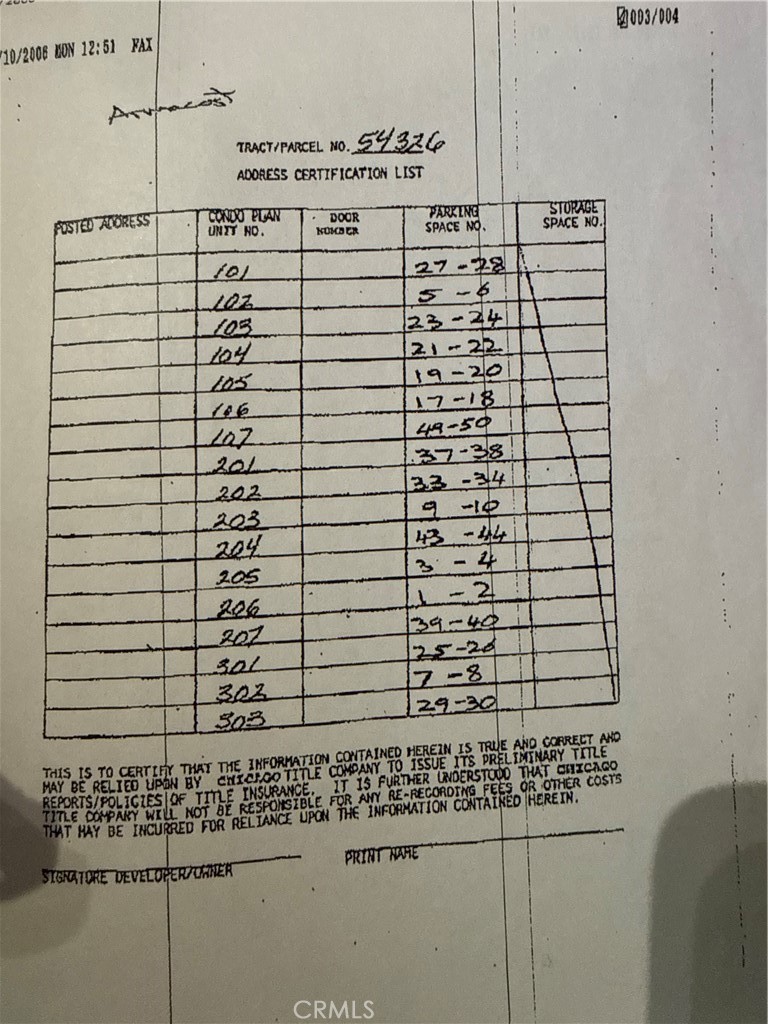 003/004
/10/2006 MON 12:51 FAX
Armacost
TRACT/PARCEL NO. 54326
ADDRESS CERTIFICATION LIST
POSTED ADDRESS CONDO PLAN UNIT NO. DOOR NUMBER PARKING SPACE NO. STORAGE SPACE NO.
101 27-28
102 5-6
103 23-24
104 21-22
105 19-20
106 17-18
107 49-50
201 37-38
202 33-34
203 9-10
204 43-44
205 3-4
206 1-2
207 39-40
301 25-26
302 7-8
303 29-30
THIS IS TO CERTIFY THAT THE INFORMATION CONTAINED HEREIN IS TRUE AND CORRECT AND
MAY BE RELIED UPON BY CHICAGO TITLE COMPANY TO ISSUE ITS PRELIMINARY TITLE
REPORTS/POLICIES OF TITLE INSURANCE. IT IS FURTHER UNDERSTOOD THAT CHICAGO
TITLE COMPANY WILL NOT BE RESPONSIBLE FOR ANY RE-RECORDING FEES OR OTHER COSTS
THAT MAY BE INCURRED FOR RELIANCE UPON THE INFORMATION CONTAINED HEREIN.
SIGNATURE DEVELOPER/OWNER PRINT NAME
CRMLS